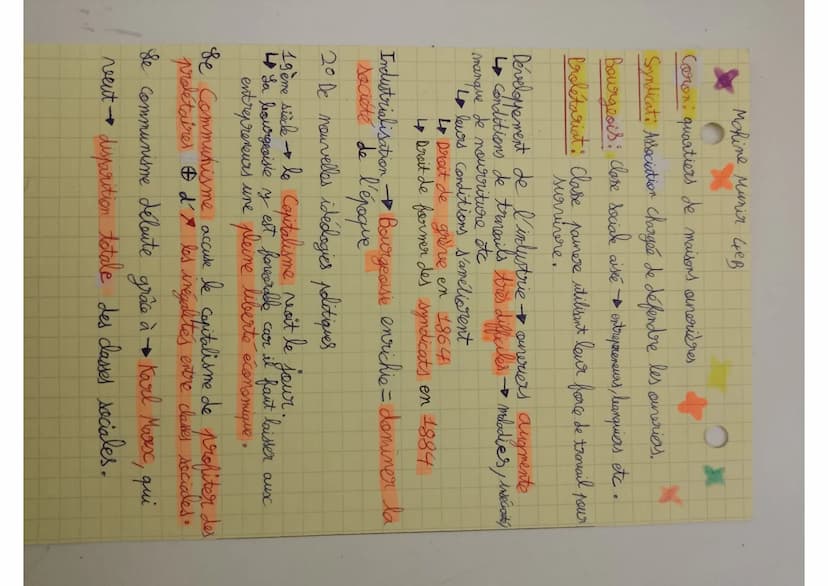 Mohine Munir 4eB
Coron: quartiers de maisons ouvrières
Syndicat: Association chargée de défendre les ouvriers.
Bourgeois: classe sociale aisé → entrepreneurs banquiers etc.
Prolétariat: Classe pauvre utilisant leur force de travail pour
survivre.
Développement de l'industrie → ouvriers augmente
↳ conditions de travails très difficiles → maladies,
manque de nourriture etc
↳ leurs conditions s'améliorent
↳ Droit de grève en 1864
↳ Droit de former des syndicats en 1884
Industrialisation → Bourgeoisie enrichie = dominer la
société de l'époque
2° De nouvelles idéologies politiques
19ème siècle → le Capitalisme naît le jour.
↳ la bourgeoisie y est favorable car il faut laisser aux
entrepreneurs une pleine liberté économique.
Le Communisme accuse le capitalisme de profiter des
prolétaires ⊕ d'↗ les inégalités entre classes sociales.
Le communisme débute grâce à → Karl Marx, qui
veut → disparition totale des classes sociales.